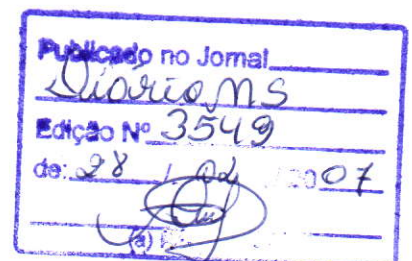 Publicado no Jornal
Diário MS
Edição Nº 3549
de: 28 / 02 / 2007
(a)